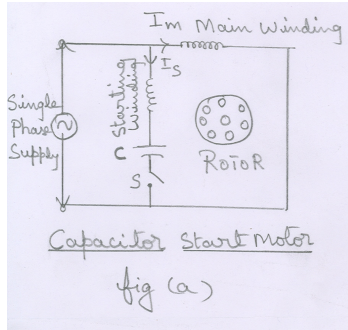 Im Main Winding
Is
Starting
Winding
Single
Phase
Supply
C
S
ROTOR
Capacitor Start Motor
fig (a)